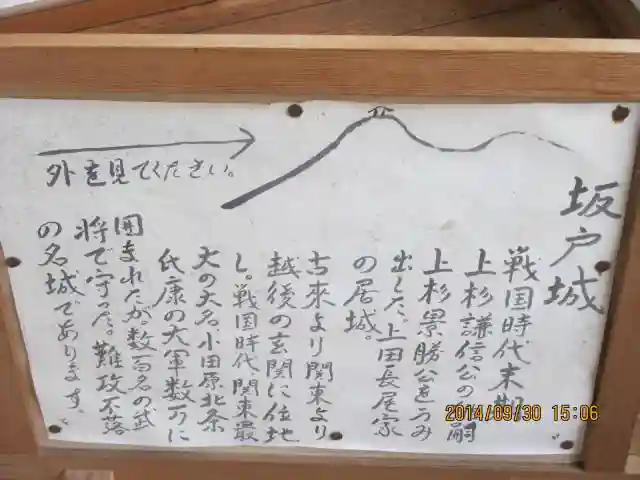 坂戸城
戦国時代末期
上杉謙信公の後嗣
上杉景勝公をうみ
出した上田長尾家
の居城。
古来より関東より
越後の玄関に位地
し。戦国時代、関東最
大の大名、小田原北条
氏康の大軍数万に
囲まれたが。数百名の武
将で守った。難攻不落
の名城であります。
外を見てください。
2014/09/30 15:06